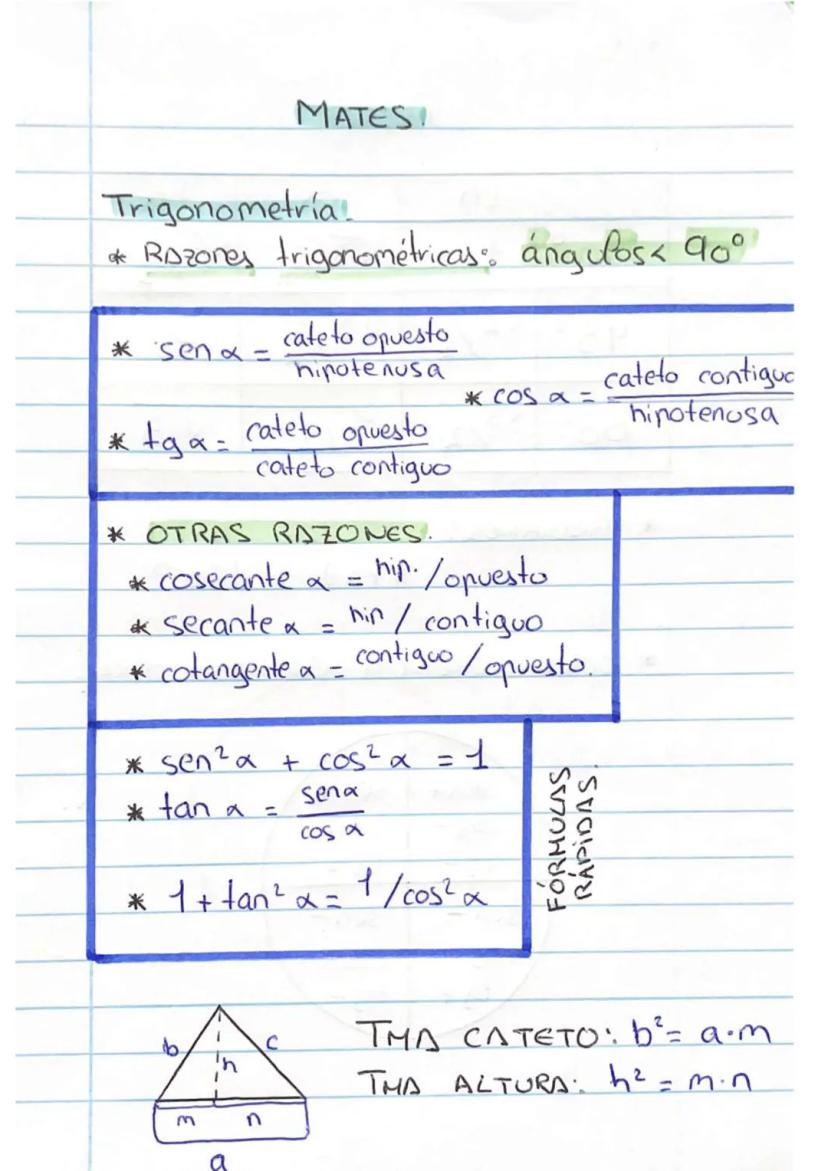 MATES.
Trigonometría.
* Razones trigonométricas: ángulos < 90°
* sen α = cateto opuesto / hipotenusa
* cos α = cateto contiguo / hipotenusa
* tg α = cateto opuesto / cateto contiguo
* OTRAS RAZONES.
* cosecante α = hip. / opuesto
* secante α = hip / contiguo
* cotangente α = contiguo / opuesto.
* sen² α + cos² α = 1
* tan α = sen α / cos α
* 1 + tan² α = 1 / cos² α
FÓRMULAS
RÁPIDAS.
b c
h
m n
a
TMA CATETO: b² = a·m
TMA ALTURA: h² = m·n